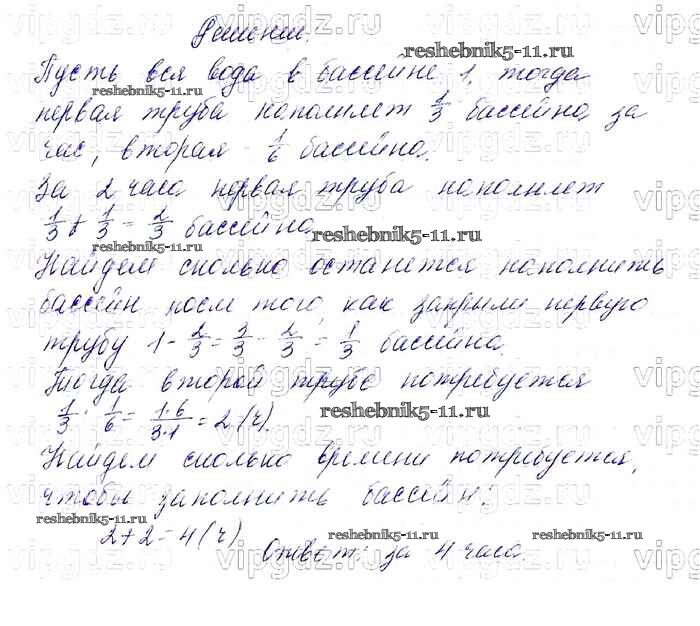 Решение.
Пусть вся вода в бассейне 1, тогда
первая труба наполняет 1/3 бассейна за
час, вторая - 1/6 бассейна.
За 2 часа первая труба наполняет
1/3 + 1/3 = 2/3 бассейна.
Найдем сколько останется наполнить
бассейн после того, как закрыли первую
трубу 1 - 2/3 = 3/3 - 2/3 = 1/3 бассейна.
Тогда второй трубе потребуется
1/3 : 1/6 = 1·6/3·1 = 2 (ч).
Найдем сколько времени потребуется,
чтобы заполнить бассейн.
2+2=4 (ч)
Ответ: за 4 часа.
reshebnik5-11.ru
reshebnik5-11.ru
reshebnik5-11.ru
reshebnik5-11.ru
reshebnik5-11.ru
reshebnik5-11.ru
reshebnik5-11.ru
reshebnik5-11.ru
vipgdz.ru